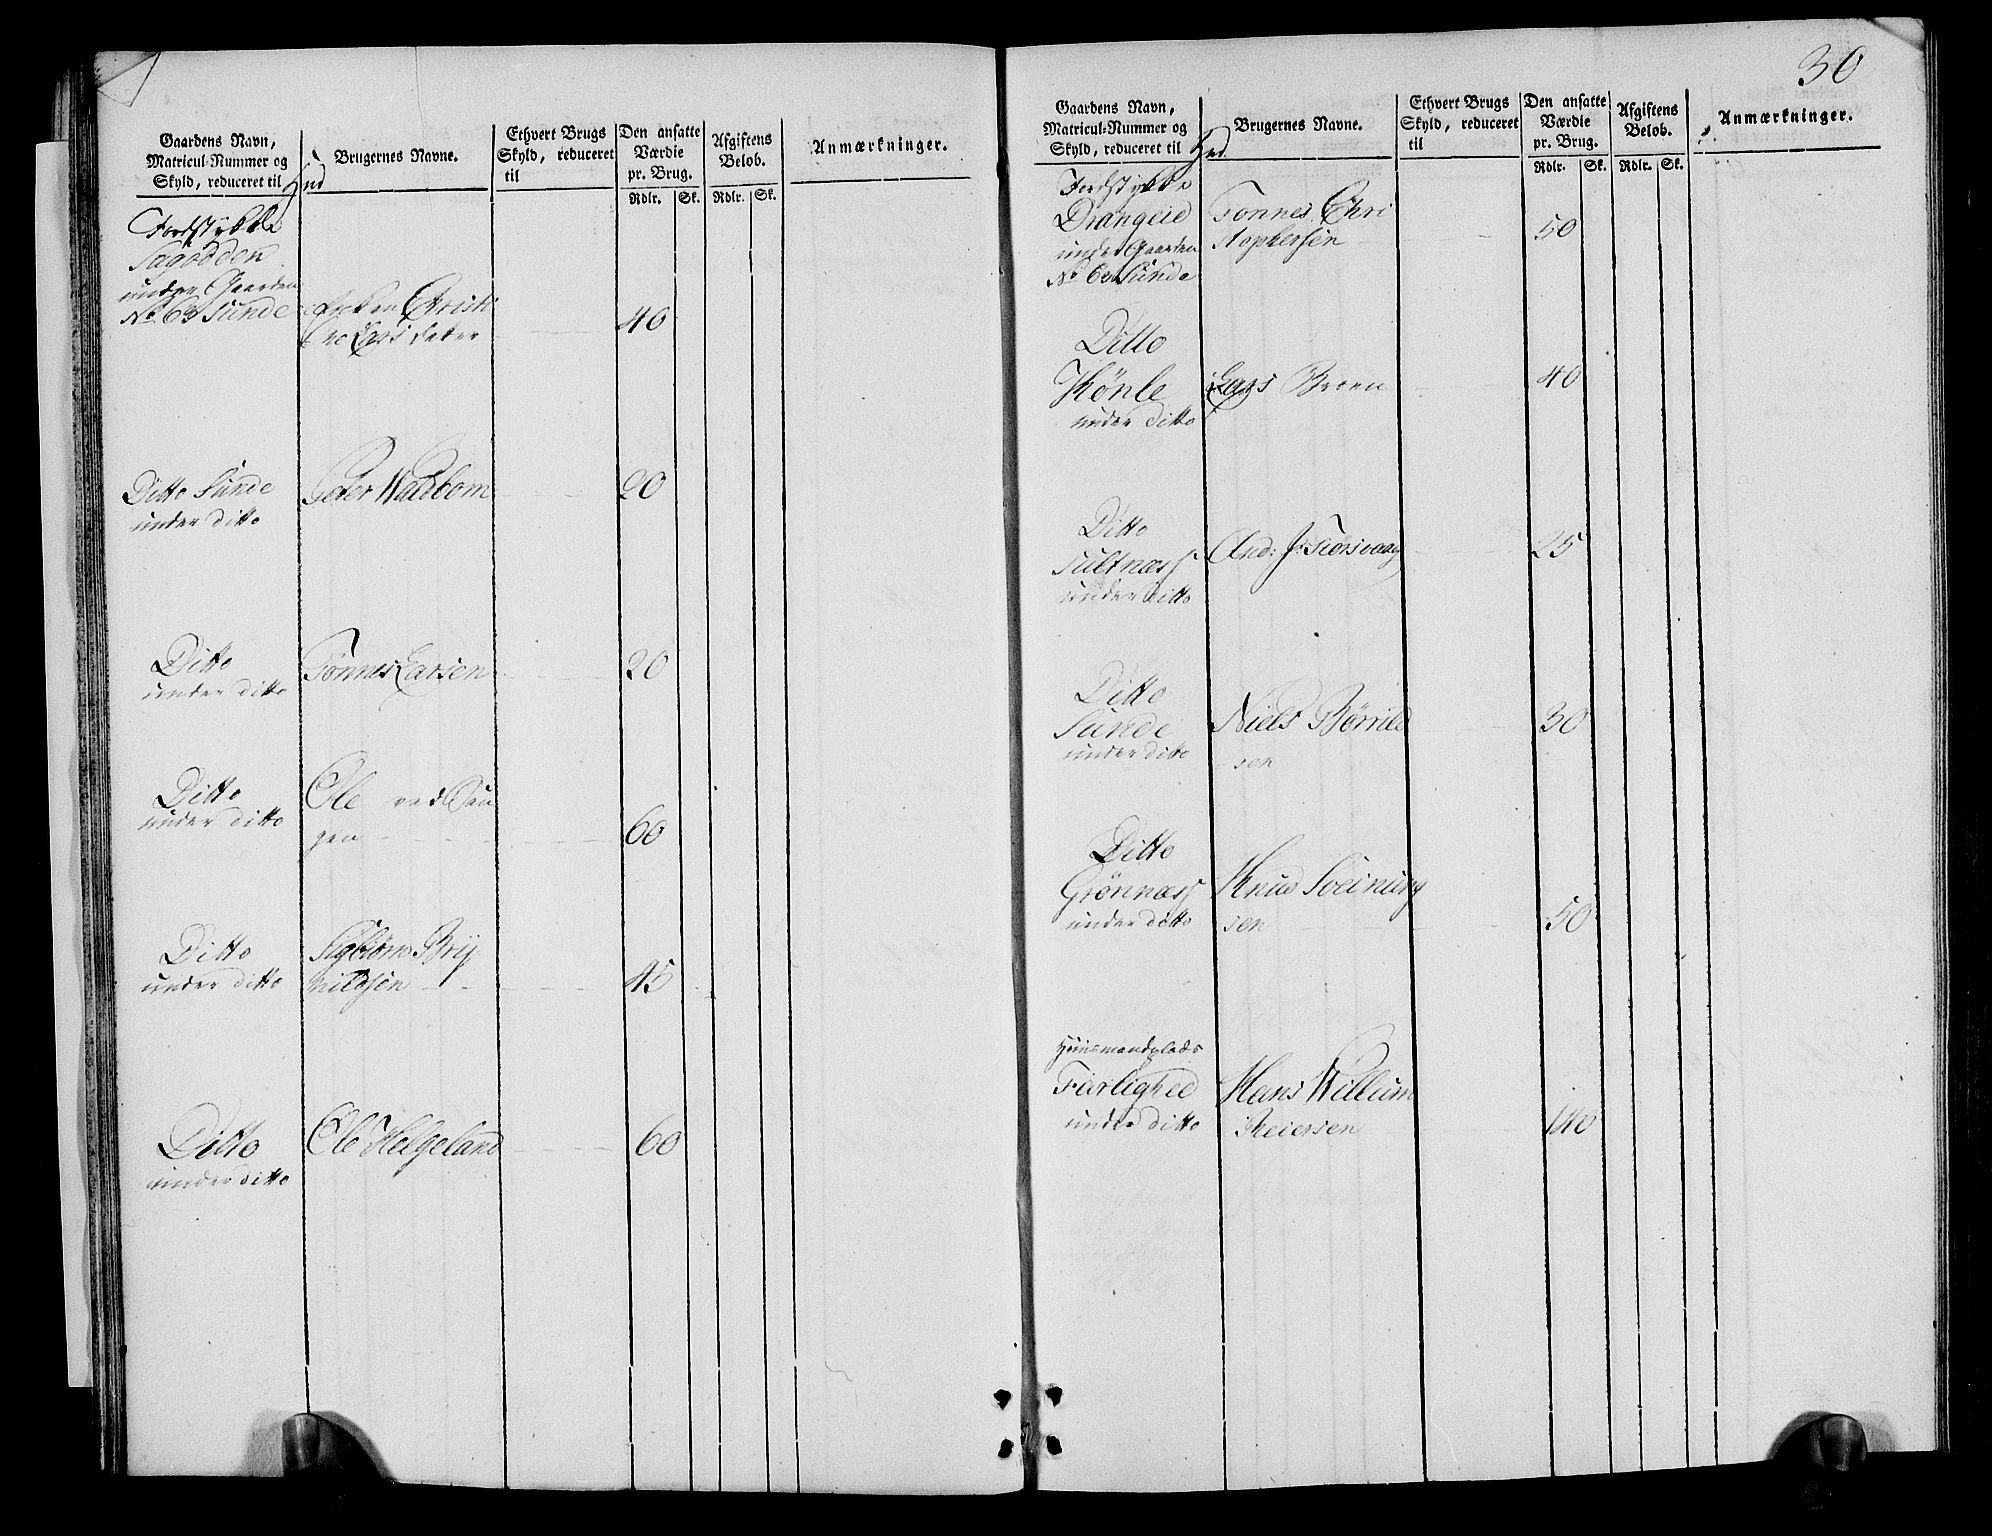 Gaardens Navn,
Matricul-Nummer og
Skyld, reduceret til Hud
Brugernes Navne.
Ethvert Brugs
Skyld, reduceret
til
Den ansatte
Værdie
pr. Brug.
Rdlr. Sk.
Afgiftens
Belob.
Rdlr. Sk.
Anmærkninger.
Jordstykke
Sagodden
under Gaarden
No 63 Sunde
Christi
ne Lars Deter
40
Ditto Sunde
under ditto
Peter Waldbom
20
Ditto
under ditto
Tønnes Larsen
20
Ditto
under ditto
Ole ved Sau
gen
60
Ditto
under ditto
Sigbiørn Bryn
nildsen
45
Ditto
under ditto
Ole Helgeland
60
30
Gaardens Navn,
Matricul-Nummer og
Skyld, reduceret til Hud
Brugernes Navne.
Ethvert Brugs
Skyld, reduceret
til
Den ansatte
Værdie
pr. Brug.
Rdlr. Sk.
Afgiftens
Belob.
Rdlr. Sk.
Anmærkninger.
Jordstykke
Drangeid
under Gaarden
No 63 Sunde
Tønnes Chri
stophersen
50
Ditto
Kønle
under ditto
Lars Broen
40
Ditto
Sultnæss
under ditto
And: J. Tiorsvaag
25
Ditto
Sunde
under ditto
Niels Børrild
sen
30
Ditto
Grønnæss
under ditto
Knud Sveinung
sen
50
Huusmandplads
Færlighed
under ditto
Hans Willum
Reiersen
140